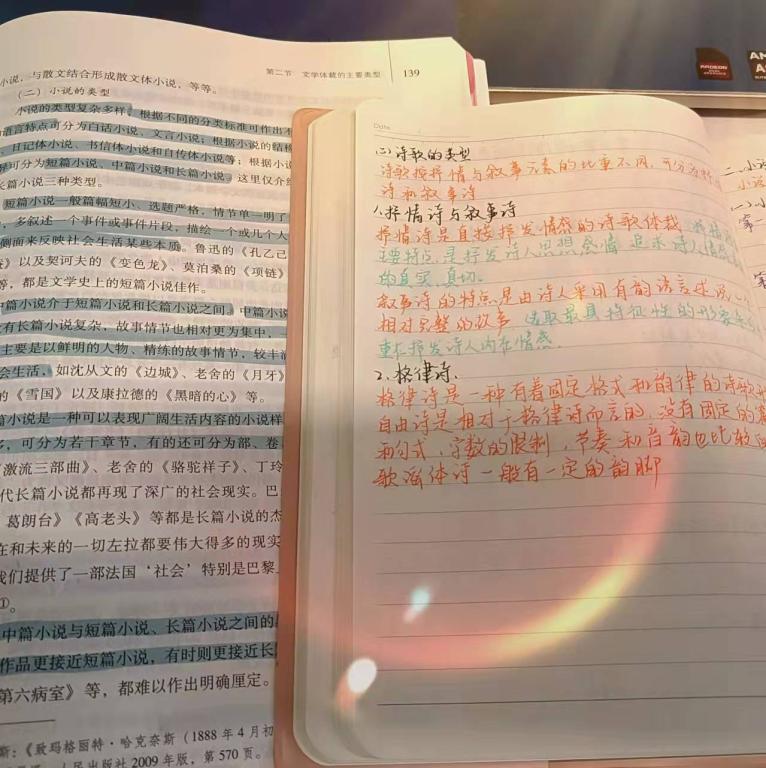 第二节 文学体裁的主要类型 139
小说，与散文结合形成散文体小说，等等。
（二）小说的类型
小说的类型复杂多样，根据不同的分类标准可作出不
语言特点可分为白话小说、文言小说；根据小说的结构
、日记体小说、书信体小说和自传体小说等；根据小说
可分为短篇小说、中篇小说和长篇小说。这里仅介绍
长篇小说三种类型。
短篇小说一般篇幅短小、选题严格，情节单一明了
，多叙述一个事件或事件片段，描绘一个或几个人
侧面来反映社会生活某些本质。鲁迅的《孔乙己
》以及契诃夫的《变色龙》、莫泊桑的《项链》
等，都是文学史上的短篇小说佳作。
中篇小说介于短篇小说和长篇小说之间。中篇小说
有长篇小说复杂，故事情节也相对更为集中，
主要是以鲜明的人物、精练的故事情节，较丰
会生活，如沈从文的《边城》、老舍的《月牙》
的《雪国》以及康拉德的《黑暗的心》等。
篇小说是一种可以表现广阔生活内容的小说样
多，可分为若干章节，有的还可分为部、卷
《激流三部曲》、老舍的《骆驼祥子》、丁玲
代长篇小说都再现了深广的社会现实。巴
葛朗台》《高老头》等都是长篇小说的杰
在和未来的一切左拉都要伟大得多的现实
我们提供了一部法国‘社会’特别是巴黎
①。
中篇小说与短篇小说、长篇小说之间的
作品更接近短篇小说，有时则更接近长
第六病室》等，都难以作出明确厘定。
斯：《致玛格丽特·哈克奈斯（1888年4月初
人民出版社2009年版，第570页。
Date
(二)诗歌的类型
诗歌按抒情与叙事元素的比重不同，可分为抒情
诗和叙事诗
1.抒情诗与叙事诗
抒情诗是直接抒发情感的诗歌体裁
主要特点是抒发诗人思想感情 追求诗人情感
的真实、真切。
叙事诗的特点是由诗人采用有韵语言述说
相对完整的故事 选取最具特征性的形象
重在抒发诗人内在情感.
2.格律诗.
格律诗是一种有着固定格式和韵律的诗歌
自由诗是相对于格律诗而言的,没有固定的
和句式,字数的限制,节奏和音韵也比较
歌谣体诗一般有一定的韵脚
RADEON